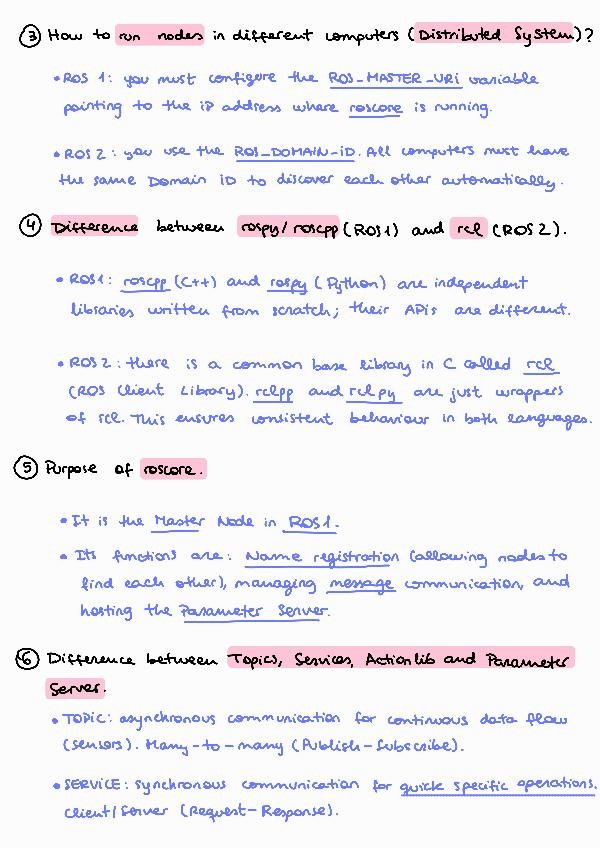 ③ How to run nodes in different computers (Distributed System)?
• ROS 1: you must configure the ROS_MASTER_URi variable
pointing to the iP address where roscore is running.
• ROS 2: you use the ROS_DOMAIN_iD. All computers must have
the same Domain iD to discover each other automatically.
④ Difference between rospy/roscpp (ROS1) and rcl (ROS 2).
• ROS1: roscpp (C++) and rospy (Python) are independent
libraries written from scratch; their APis are different.
• ROS 2: there is a common base library in C called rcl
(ROS Client Library). rclpp and rclpy are just wrappers
of rcl. This ensures consistent behaviour in both languages.
⑤ Purpose of roscore.
• It is the Master Node in ROS1.
• Its functions are: Name registration (allowing nodes to
find each other), managing message communication, and
hosting the Parameter Server.
⑥ Difference between Topics, Services, Actionlib and Parameter
Server.
• TOPIC: asynchronous communication for continuous data flow
(sensors). Many-to-many (Publish-Subscribe).
• SERVICE: synchronous communication for quick specific operations.
Client/Server (Request-Response).